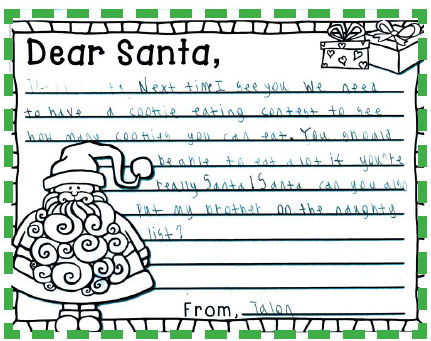 Dear Santa,
Next time I see you we need
to have a cookie eating contest to see
how many cookies you can eat. You should
be able to eat alot if you're
really Santa! Santa can you also
Put my brother on the naughty
list?
From, Jalon